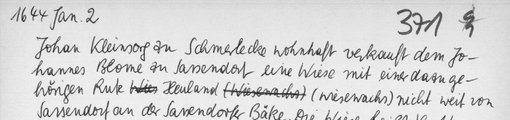 1644 Jan. 2
371
Johan Kleinsorg zu Schmerlecke wohnhaft verkauft dem Jo-
hannes Blome zu Sassendorf eine Wiese mit einer dazuge-
hörigen Rute Heuland (Wiesewachs) (wiesewachs) nicht weit von
Sassendorf an der Sassendorfer Bäke. Die Wiese